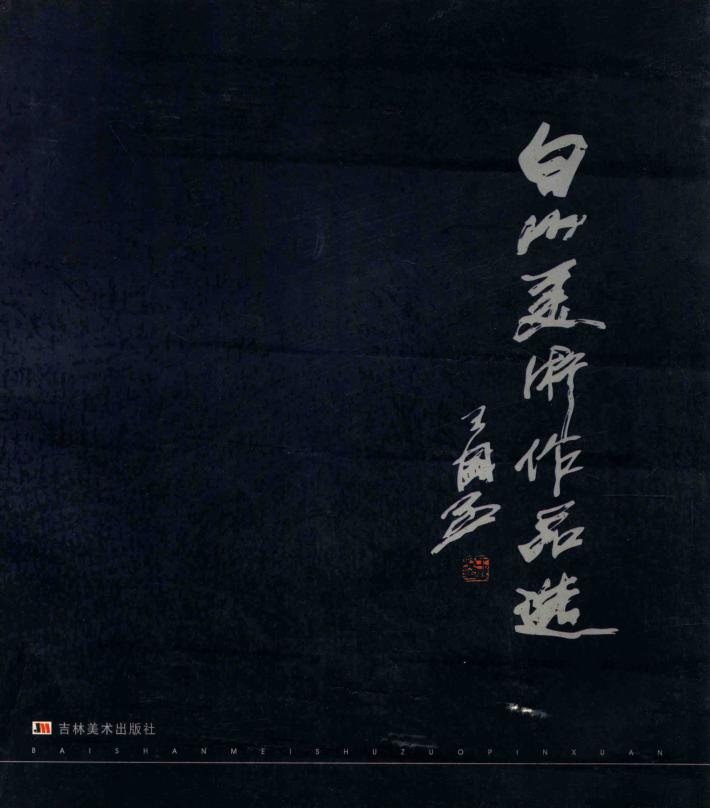 白山美術作品选
吉林美术出版社
BAISHANMEISHUZUOPINXUAN